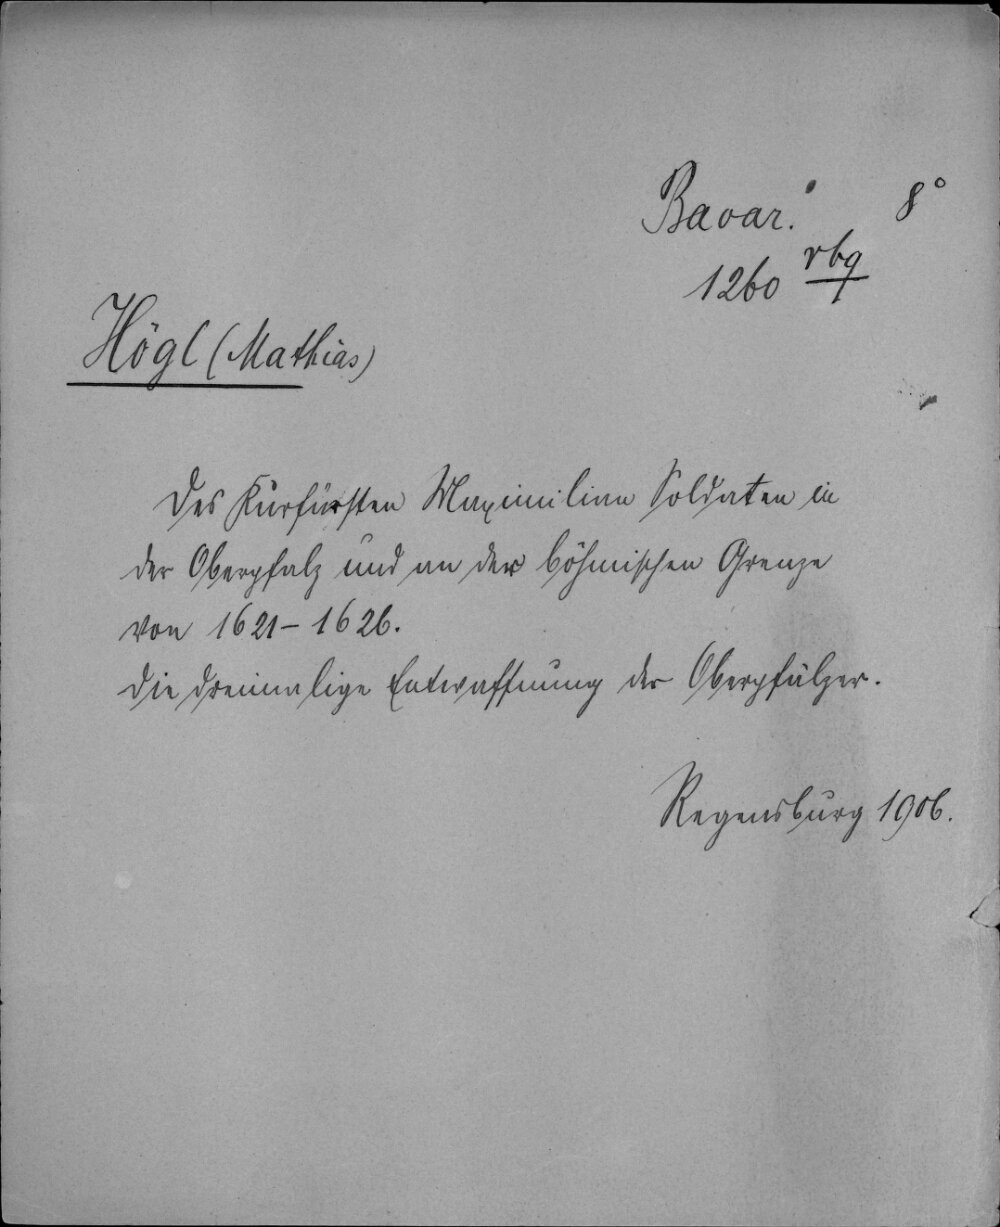 Bavar. 8°
1260 rbq
Högl (Mathias)
Des Kurfürsten Maximilian Soldaten in
der Oberpfalz und an der böhmischen Grenze
von 1621-1626.
Die dreimalige Entwaffnung der Oberpfälzer.
Regensburg 1906.